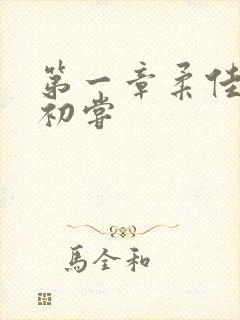 第一章柔佳
初嘗
馬全和